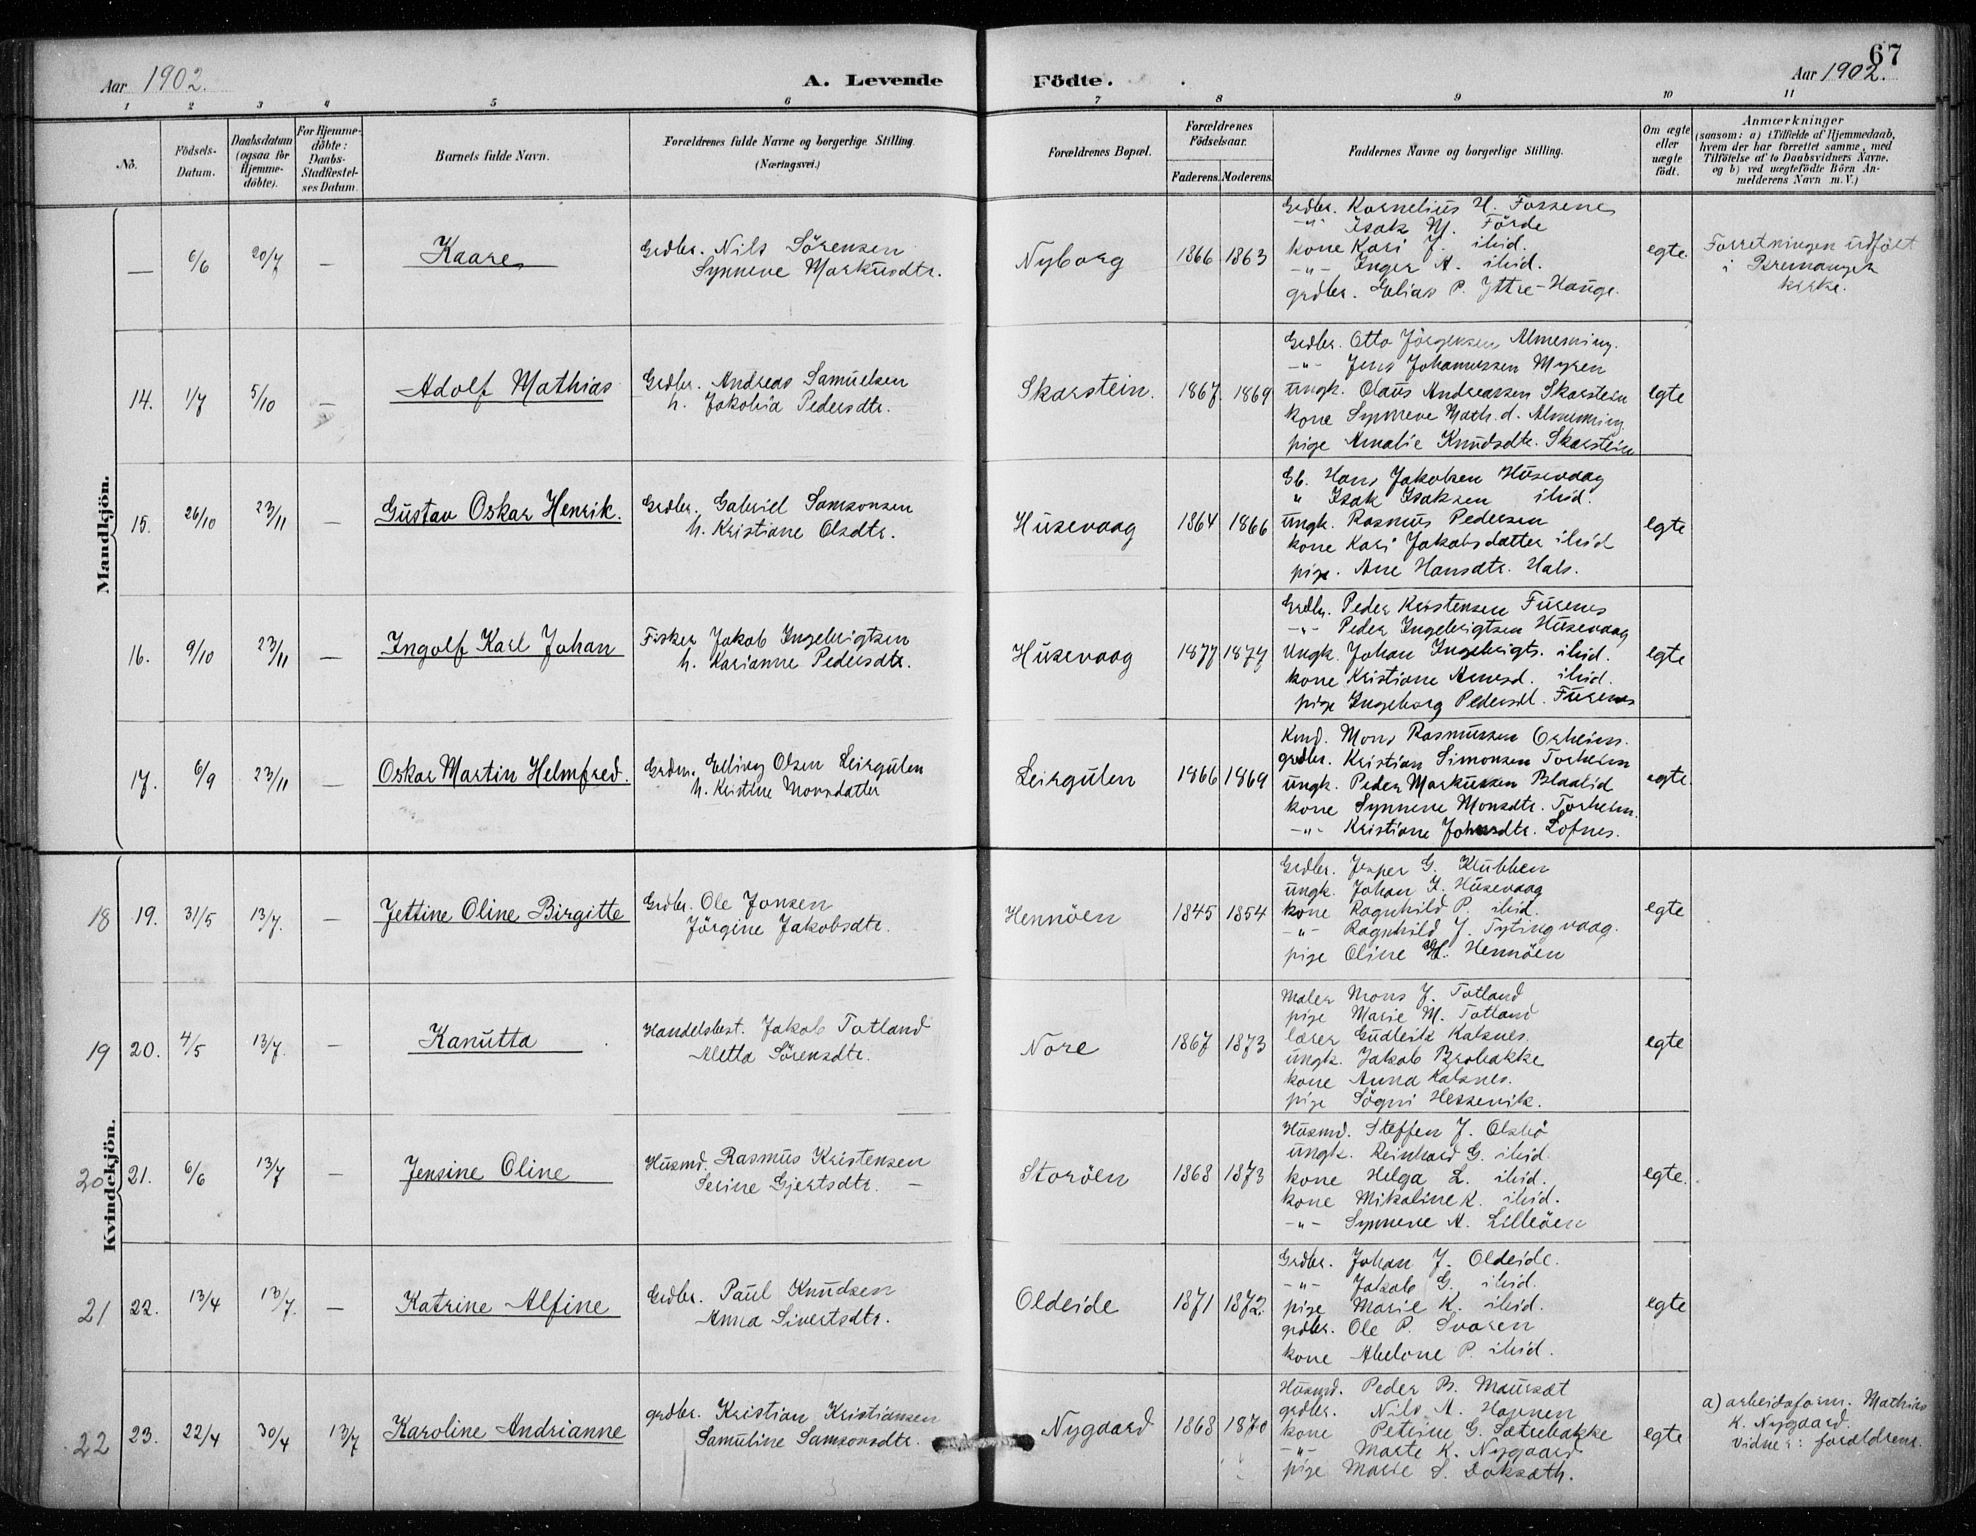 67
Aar 1902.
A. Levende
Födte.
Aar 1902.
1 2 3 4 5 6 7 8 9 10 11
Nö.
Födsels-
Datum.
Daabsdatum
(ogsaa for
Hjemme-
döbte).
For Hjemme-
döbte:
Daabs-
Stadfæstel-
ses Datum.
Barnets fulde Navn.
Forældrenes fulde Navne og borgerlige Stilling.
(Næringsvei.)
Forældrenes Bopæl.
Forældrenes
Födselsaar.
Faderens. Moderens.
Faddernes Navne og borgerlige Stilling.
Om ægte
eller
uægte
födt.
Anmærkninger
(saasom: a) i Tilfælde af Hjemmedaab,
hvem der har forrettet samme, med
Tilföielse af to Daabsvidners Navne,
og b) ved uægtefödte Börn An-
melderens Navn m.V.)
Mandkjön.
— 6/6 20/7 — Kaare
Grdbr. Nils Sörensen
Synneve Markusdtr.
Nyborg 1866 1863
Grdbr. Kornelius H. Fossenes
-"- Isak M. Förde
kone Kari J. ibid.
-"- Inger A. ibid.
grdbr. Elias P. Yttre-Hauge.
egte.
Forretningen udfört
i Bremanger
kirke.
14. 1/7 5/10 — Adolf Mathias
Grdbr. Andreas Samuelsen
h. Jakobia Pedersdtr.
Skarstein. 1867. 1869
Grdbr. Otto Jörgensen Almenning.
-"- Jens Johannessen Myren
ungk. Olaus Andreassen Skarstein
kone Synneve Math.d. Almenning
pige Amalie Knudsdtr. Skarstein
egte
15. 26/10 23/11 — Gustav Oskar Henrik.
Grdbr. Gabriel Samsonsen
h. Kristiane Olsdtr.
Husevaag 1864 1866
Gb. Hans Jakobsen Husevaag
" Isak Isaksen ibid.
ungk. Rasmus Pedersen
kone Kari Jakobsdatter ibid
pige. Ane Hansdtr. Hals.
egte
16. 9/10 23/11 — Ingolf Karl Johan
Fisker Jakob Ingebrigtsen
h. Karianne Pedersdtr.
Husevaag 1877 1874
Grdbr. Peder Kristensen Furenes
-"- Peder Ingebrigtsen Husevaag
Ungk. Johan Ingebrigts. ibid.
kone Kristiane Arnesd. ibid.
pige Ingeborg Pedersdt. Furenes
egte
17. 6/9 23/11 — Oskar Martin Helmfred.
Grdm. Elling Olsen Leirgulen
h. Kristine Monsdatter
Leirgulen 1866 1869
Kmd. Mons Rasmussen Orheim.
grdbr. Kristian Simonsen Torheim
ungk. Peder Markussen Blaalid
kone Synneve Monsdtr. Torheim.
-"- Kristiane Johnsdtr. Löfnes.
egte
Kvindekjön.
18 19. 31/5 13/7. — Jettine Oline Birgitte
Grdbr. Ole Jonsen
Jörgine Jakobsdtr.
Hennöen 1845 1854
Grdbr. Jesper G. Klubben
ungk. Johan I. Husevaag
kone Ragnhild P. ibid.
-"- Ragnhild J. Tytingvaag.
pige Oline H. Hennöen
egte
19 20. 4/5 13/7. — Kanutta
Handelsbest. Jakob Totland
Aletta Sörensdtr.
Nore 1867 1873
Maler Mons J. Totland
pige Marie M. Totland
lærer Gudleik Kalsnes.
ungk. Jakob Brobakke
kone Anna Kalsnes.
pige Sögni Hessevik.
egte
20 21. 6/6 13/7 — Jensine Oline
Husmd. Rasmus Kristensen
Serine Gjertsdtr. —
Storöen 1868 1873
Husmd. Steffen J. Olsbö
ungk. Reinhard G. ibid.
kone Helga L. ibid.
kone Mikaline K. ibid.
-"- Synneve A. Lilleöen
egte.
21 22. 13/4 13/7. — Katrine Alfine
Grdbr. Paul Knudsen
Anna Sivertsdtr.
Oldeide 1871 1872.
Grdbr. Johan J. Oldeide.
-"- Jakob G. ibid.
pige Marie K. ibid.
grdbr. Ole P. Svoren
kone Abelone P. ibid.
egte
22 23. 22/4 30/4 13/7 Karoline Andrianne
grdbr. Kristian Kristiansen
Samuline Samsonsdtr.
Nygaard 1868 1870
Husmd. Peder B. Maursæt
grdbr. Nils A. Hopnen
kone Petrine G. Sætrebakke
-"- Marte K. Nygaard
pige Marie S. Doksæth.
egte
a) arbeidsform. Mathias
K. Nygaard.
Vidner: forældrene.